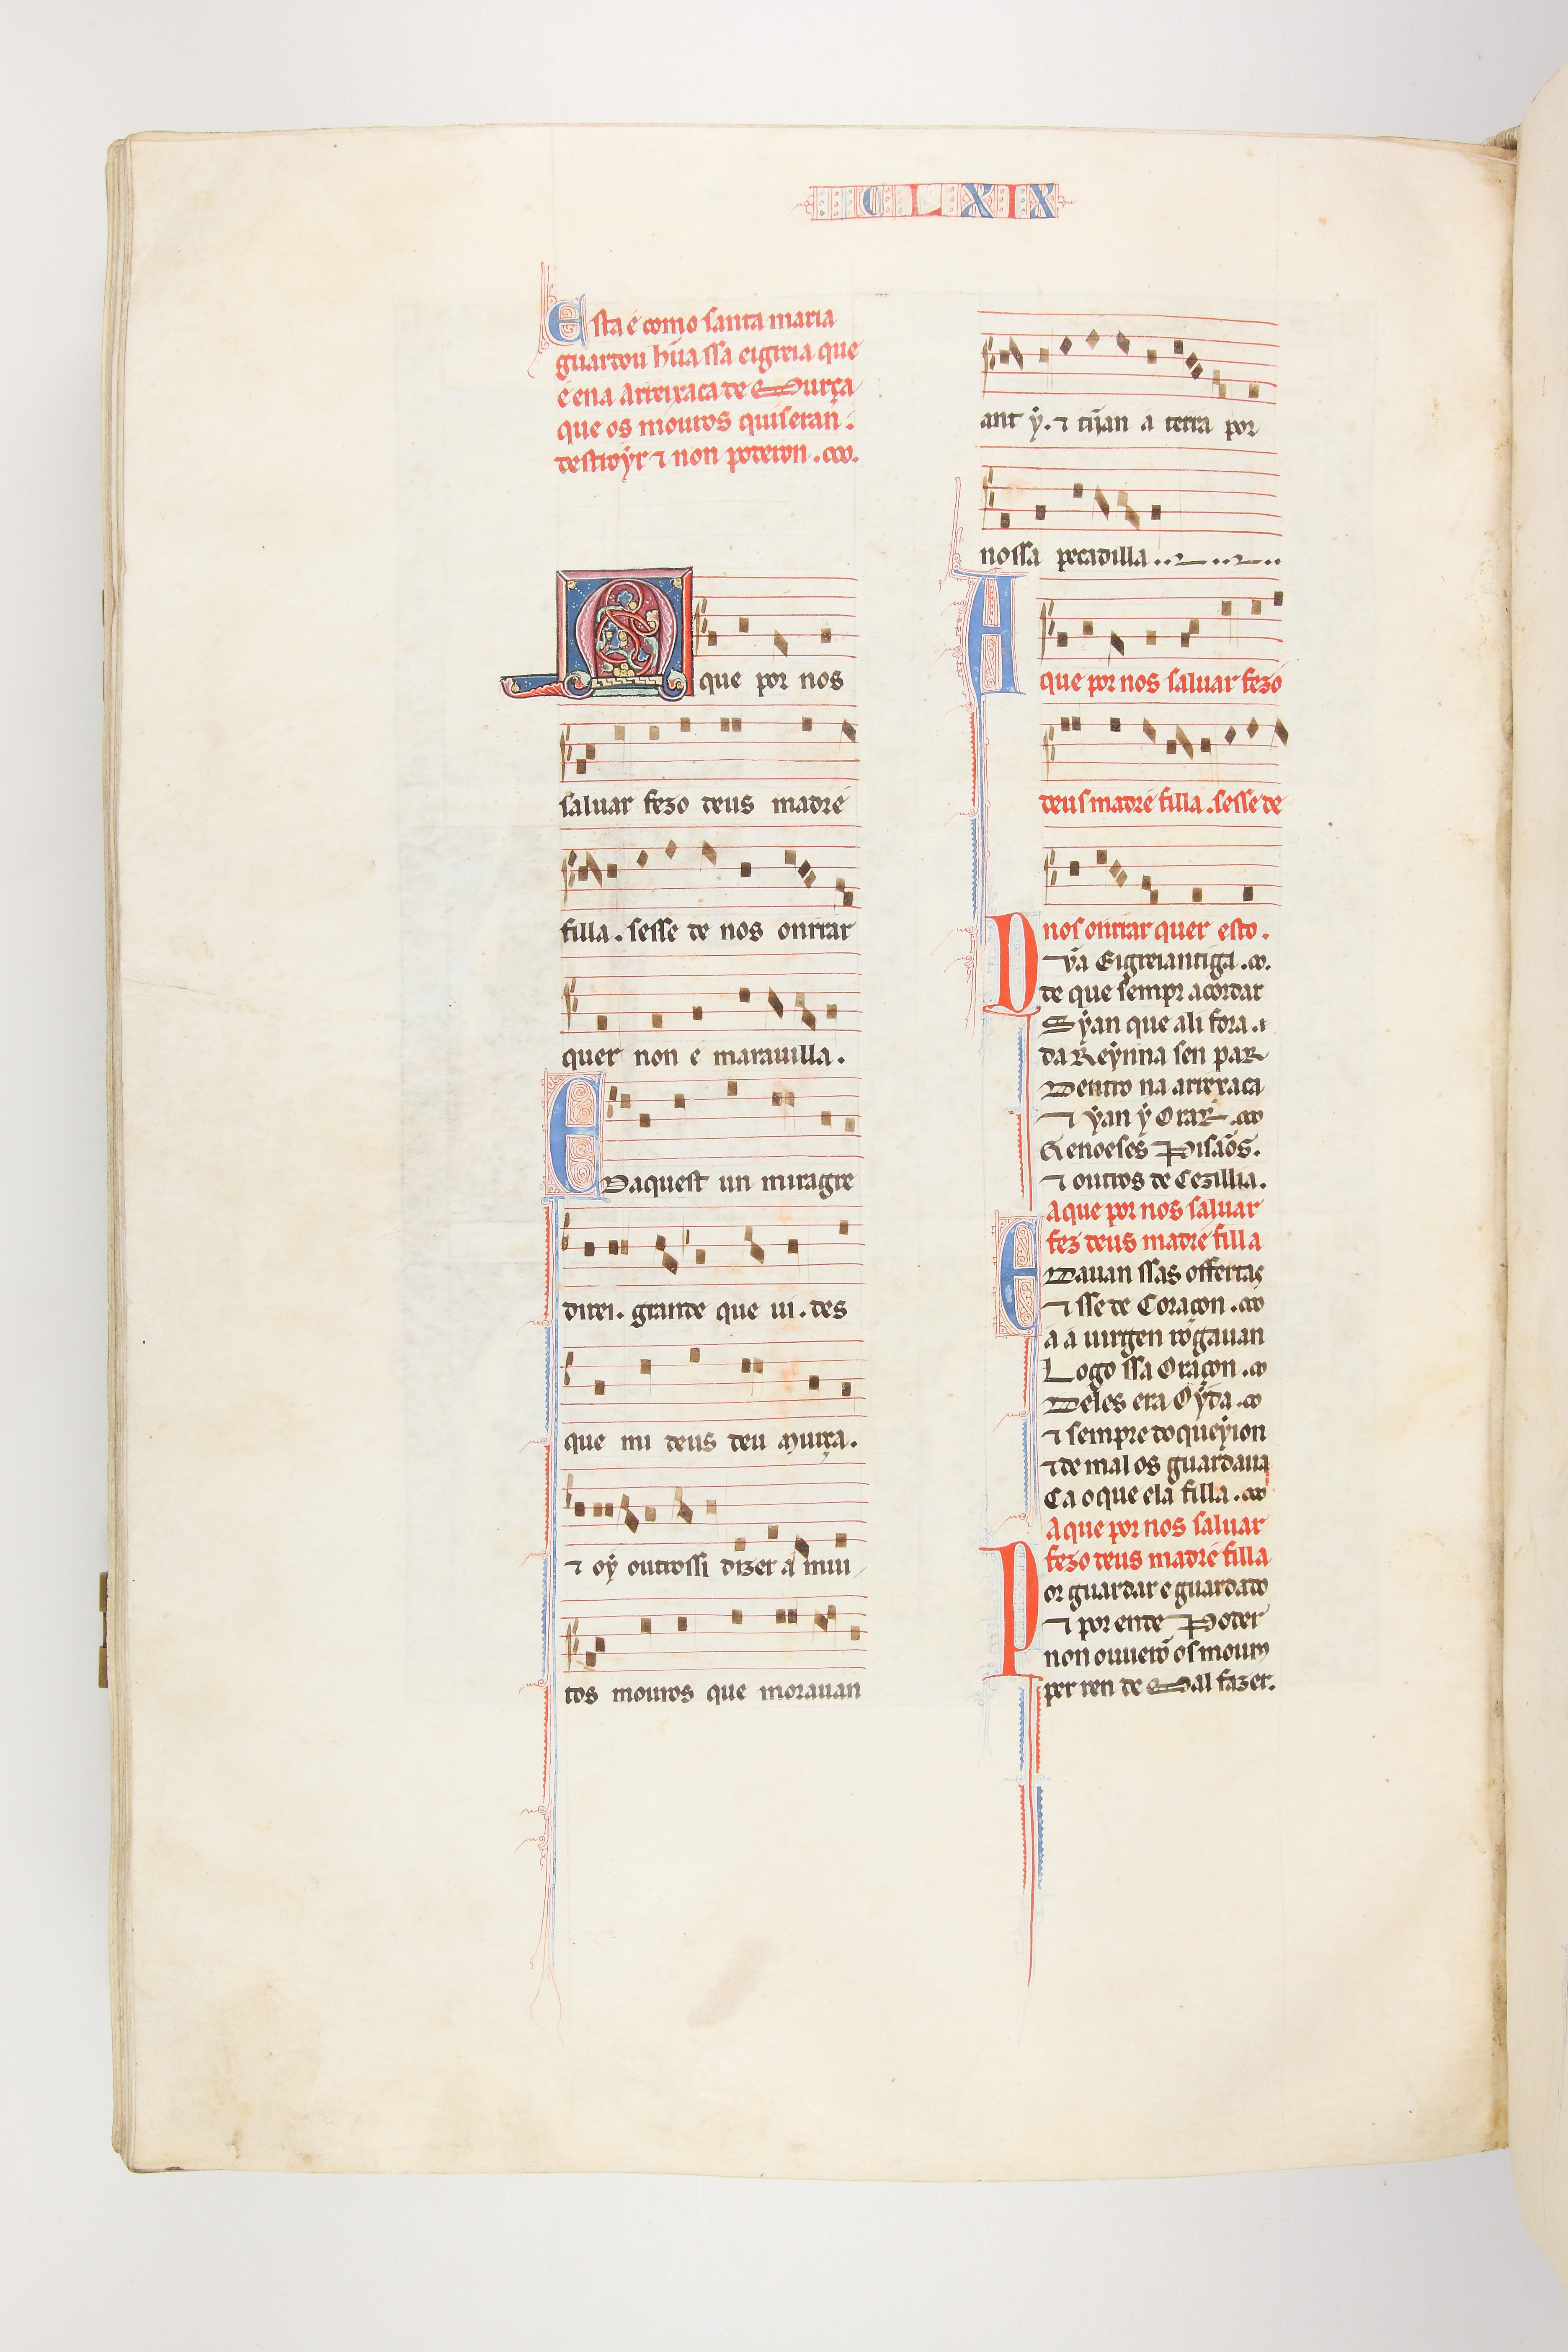 CLXIX
Esta é como santa maria
guardou hũa ssa eigreia que
é ena arreixaca de Murça
que os mouros quiseran
destroỹr ⁊ non poderon.
A que por nos
saluar fezo deus madre
filla. sesse de nos onrrar
quer non é marauilla.
E Daquest un miragre
direi. grande que ui. des
que mi deus deu Murça.
⁊ oý outrossi dizer a mui
tos mouros que morauan
ant ý. ⁊ tij̃an a terra por
nossa pecadilla..
A que por nos saluar fezo
deus madre filla. sesse de
nos onrrar quer esto.
Dũa Eigreiantiga.
de que sempr acordar
Sýan que ali fora.
da Reýnna sen par
Dentro na arrexaca
⁊ ýan ý Orar
Genoeses Pisãos.
⁊ outros de Cezillia.
A que por nos saluar
fez deus madre filla
E Dauan ssas offertas
⁊ sse de Coraçon.
á á uirgen rogauan
Logo ssa Oraçon.
Deles era Oýda.
⁊ sempre do queýion
⁊ de mal os guardaua
Ca o que ela filla.
A que por nos saluar
fezo deus madre filla
Por guardar e guardado
⁊ por ende Poder
non ouuerõ os mouros
per ren de Mal fazer.